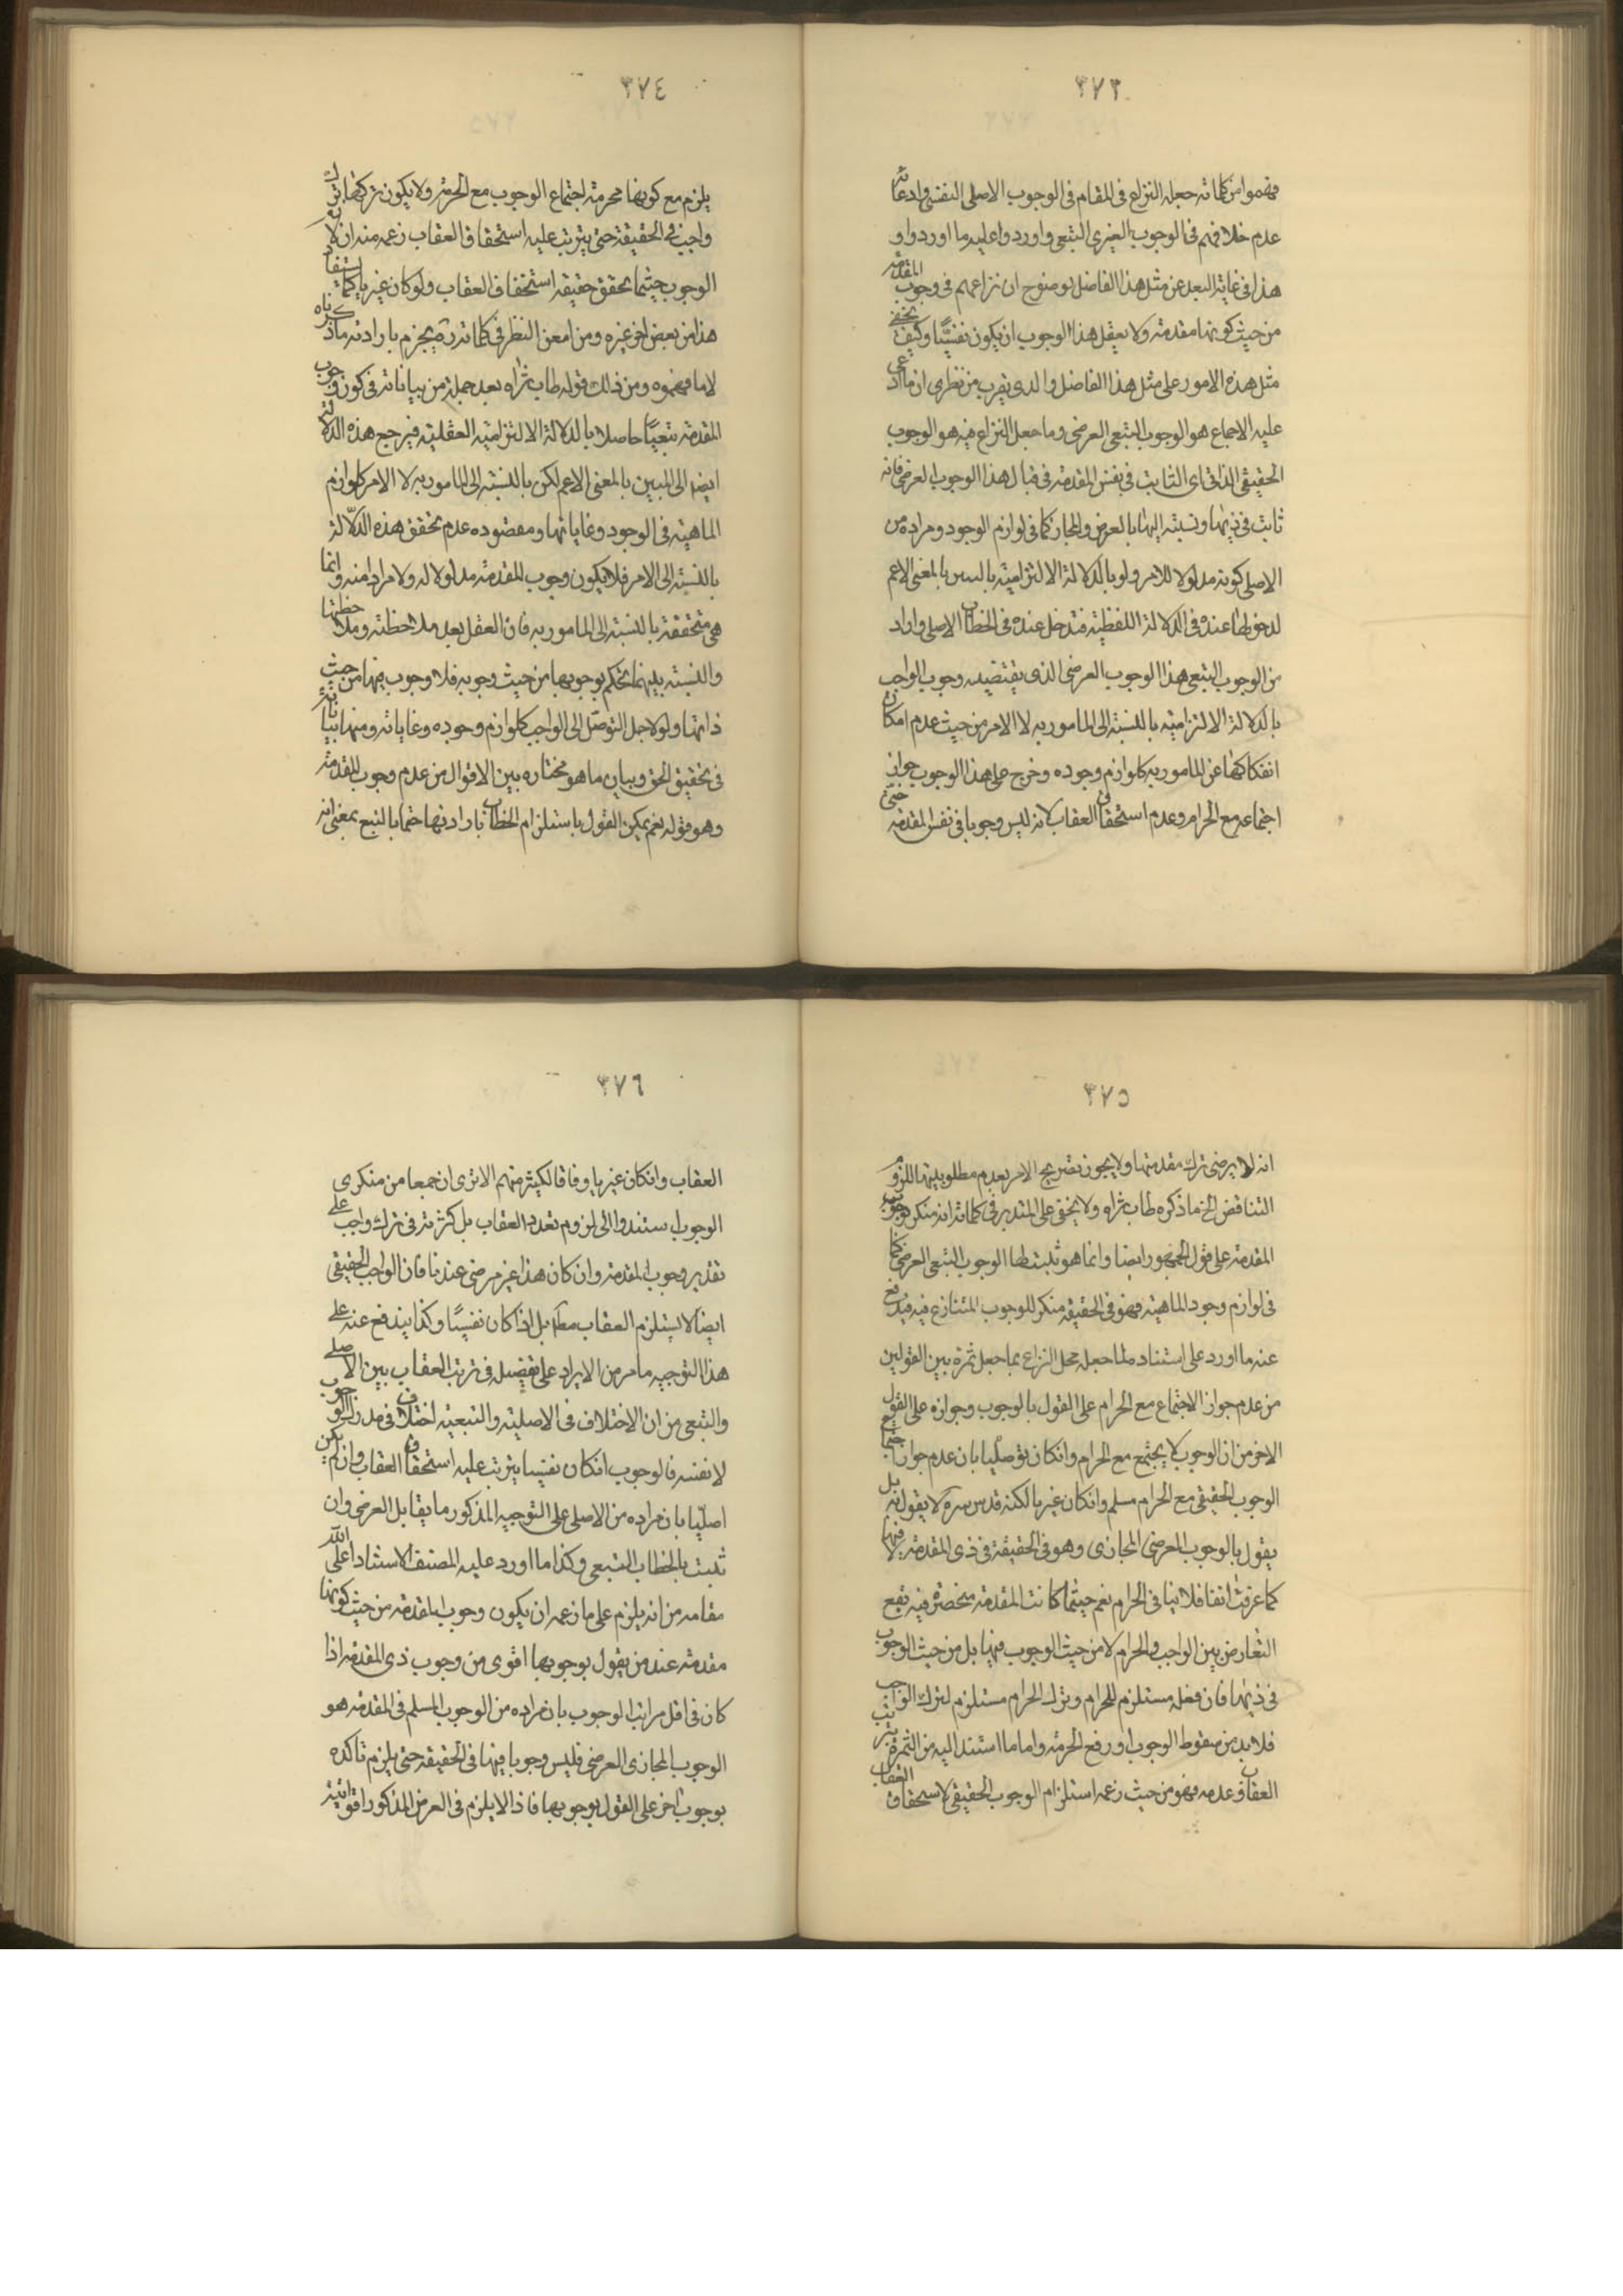 ٣٧٣
فهموا من كلماته جعله النزاع فى المقام فى الوجوب الاصلى النفسى وادعائه
عدم خلافهم فى الوجوب الغيرى التبعى واوردوا عليه ما اوردوا و
هذا فى غاية البعد عن مثل هذا الفاضل لوضوح ان نزاعهم فى وجوب المقدمة
من حيث كونها مقدمة ولا يعقل هذا الوجوب ان يكون نفسيًّا وكيف يخفى
مثل هذه الامور على مثل هذا الفاضل والذى يقرب من نظرى ان ما ادعى
عليه الاجماع هو الوجوب التبعى العرضى وما جعل النزاع فيه هو الوجوب
الحقيقى الذاتى اى الثابت فى نفس المقدمة فى قبال هذا الوجوب العرضى فانه
ثابت فى ذيها ونسبته اليها بالعرض والمجاز كما فى لوازم الوجود ومراده من
الاصلى كونه مدلولا للامر ولو بالدلالة الالتزامية بالبين بالمعنى الاعم
لدخولها عنده فى الدلالة اللفظية فتدخل عنده فى الخطاب الاصلى واراد
من الوجوب التبعى هذا الوجوب العرضى الذى يقتضيه وجوب الواجب
بالدلالة الالتزامية بالنسبة الى المامور به لا الامر من حيث عدم امكان
انفكاكها عن المامور به كلوازم وجوده وخرج على هذا الوجوب جواز
اجتماعه مع الحرام وعدم استحقاق العقاب لانه ليس وجوبا فى نفس المقدمة حتى
٣٧٤
يلزم مع كونها محرمة اجتماع الوجوب مع الحرمة ولا يكون تركها ترك
واجب فى الحقيقة حتى يترتب عليه استحقاق العقاب زعمه منه ان
الوجوب حيثما تحقق حقيقه استحقاق العقاب ولو كان غيريا كما يستفاد
هذا من بعض اخر غيره ومن امعن النظر فى كلماته ره يجزم بارادته ما ذكرناه
لا ما فهموه ومن ذلك قوله طاب ثراه بعد جملة من بياناته فى كون وجوب
المقدمة تبعيًّا حاصلا بالدلالة الالتزامية العقلية فيرجع هذه الدلالة
ايضا الى البين بالمعنى الاعم لكن بالنسبة الى المامور به لا الامر كلوازم
الماهية فى الوجود وغاياتها ومقصوده عدم تحقق هذه الدلالة
بالنسبة الى الامر فلا يكون وجوب المقدمة مدلولا له ولا مرادا منه وانما
هى متحققة بالنسبة الى المامور به فان العقل بعد ملاحظته وملاحظتها
والنسبة بينهما يحكم بوجوبها من حيث وجوبه فلا وجوب فيها من حيث
ذاتها ولو لاجل التوصّل الى الواجب كلوازم وجوده وغاياته ومنها بياناته
فى تحقيق الحق وبيان ما هو مختاره بين الاقوال من عدم وجوب المقدمة
وهو قوله نعم يمكن القول باستلزام الخطاب بارادتها حتما بالتبع بمعنى انه
٣٧٥
انه لا يرضى بترك مقدمتها ولا يجوز تصريح الامر بعدم مطلوبيتها للزوم
التناقض الخ ما ذكره طاب ثراه ولا يخفى على المتدبر فى كلماته انه منكر لوجوب
المقدمة على قول الجمهور ايضا وانما هو ثبت لها الوجوب التبعى العرضى كما
فى لوازم وجود الماهية فهو فى الحقيقة منكر للوجوب المتنازع فيه فيندفع
عنه ما اورد على استناد ما جعله محل النزاع بما جعل ثمرة بين القولين
من عدم جواز الاجتماع مع الحرام على القول بالوجوب وجوازه على القول
الاخر من ان الوجوب لا يجتمع مع الحرام وانكان توصليا بان عدم جواز اجتماع
الوجوب الحقيقى مع الحرام مسلم وانكان غيريا لكنه قدس سره لا يقول به بل
يقول بالوجوب العرضى المجازى وهو فى الحقيقة فى ذى المقدمة لا فيها
كما عرفت انفا فلا ينافى الحرام نعم حيثما كانت المقدمة منحصرة فيه يقع
التعارض بين الواجب والحرام لا من حيث الوجوب فيها بل من حيث الوجوب
فى ذيها فان فعله مستلزم للحرام وترك الحرام مستلزم لترك الواجب
فلا بد من سقوط الوجوب او رفع الحرمة واما ما استند اليه من الثمرة بترتب
العقاب وعدمه فهو من حيث زعمه استلزام الوجوب الحقيقى لاستحقاق العقاب
٣٧٦
العقاب وانكان غيريا وفاقا لكثير منهم الا ترى ان جمعا من منكرى
الوجوب استندوا الى لزوم تعدد العقاب بل كثرته فى ترك واجب على
تقدير وجوب المقدمة وان كان هذا غير مرضى عندنا فان الواجب الحقيقى
ايضا لا يستلزم العقاب مطلقا بل اذا كان نفسيًا وكذا يندفع عنه على
هذا التوجيه ما مر من الايراد على تفصيله فى ترتب العقاب بين الاصلى
والتبعى من ان الاختلاف فى الاصلية والتبعية اختلاف فى مدرك الوجوب
لا نفسه فالوجوب انكان نفسيا يترتب عليه استحقاق العقاب وان لم يكن
اصليّا بان مراده من الاصلى على التوجيه المذكور ما يقابل العرضى وان
ثبت بالخطاب التبعى وكذا ما اورد عليه المصنف الاستاد اعلى الله
مقامه من انه يلزم على ما زعمه ان يكون وجوب المقدمة من حيث كونها
مقدمة عند من يقول بوجوبها اقوى من وجوب ذى المقدمة اذا
كان فى اقل مراتب الوجوب بان مراده من الوجوب المسلم فى المقدمة هو
الوجوب المجازى العرضى فليس وجوبا فيها فى الحقيقة حتى يلزم تاكده
بوجوب اخر على القول بوجوبها فاذا لا يلزم فى العرض المذكور اقوائية